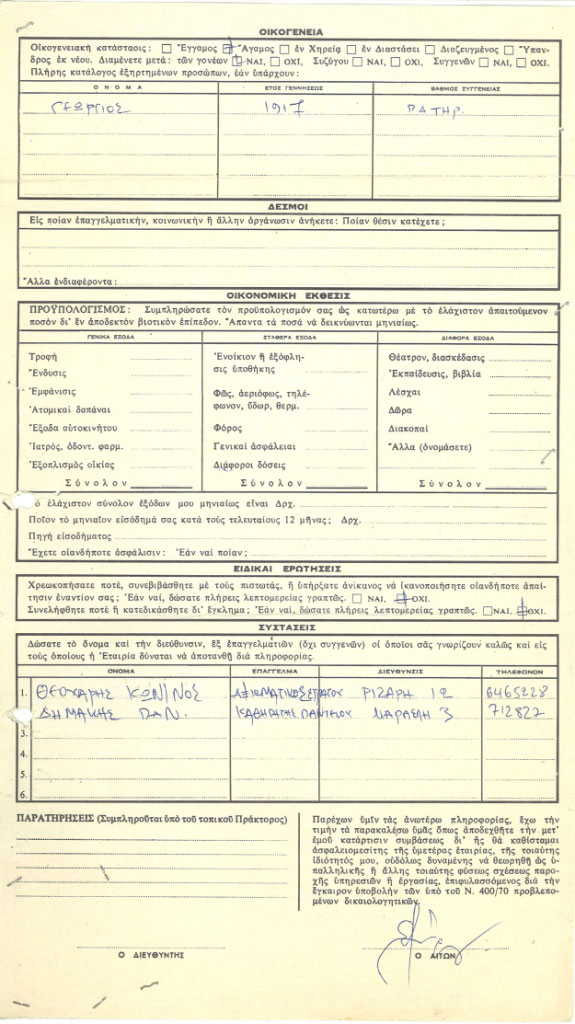 ΟΙΚΟΓΕΝΕΙΑ
Οἰκογενειακή κατάστασις: ☐ Ἔγγαμος ☒ Ἄγαμος ☐ ἐν Χηρείᾳ ☐ ἐν Διαστάσει ☐ Διεζευγμένος ☐ Ὕπαν-
δρος ἐκ νέου. Διαμένετε μετά: τῶν γονέων ☒ ΝΑΙ, ☐ ΟΧΙ, Συζύγου ☐ ΝΑΙ, ☐ ΟΧΙ. Συγγενῶν ☐ ΝΑΙ, ☐ ΟΧΙ.
Πλήρης κατάλογος ἐξηρτημένων προσώπων, ἐάν ὑπάρχουν:
ΟΝΟΜΑ ΕΤΟΣ ΓΕΝΝΗΣΕΩΣ ΒΑΘΜΟΣ ΣΥΓΓΕΝΕΙΑΣ
ΓΕΩΡΓΙΟΣ 1917 ΠΑΤΗΡ
ΔΕΣΜΟΙ
Εἰς ποίαν ἐπαγγελματικήν, κοινωνικήν ἤ ἄλλην ὀργάνωσιν ἀνήκετε: Ποίαν θέσιν κατέχετε;
Ἄλλα ἐνδιαφέροντα:
ΟΙΚΟΝΟΜΙΚΗ ΕΚΘΕΣΙΣ
ΠΡΟΫΠΟΛΟΓΙΣΜΟΣ: Συμπληρώσατε τόν προϋπολογισμόν σας ὡς κατωτέρω μέ τό ἐλάχιστον ἀπαιτούμενον
ποσόν δι' ἕν ἀποδεκτόν βιοτικόν ἐπίπεδον. Ἅπαντα τά ποσά νά δεικνύωνται μηνιαίως.
ΓΕΝΙΚΑ ΕΞΟΔΑ ΣΤΑΘΕΡΑ ΕΞΟΔΑ ΔΙΑΦΟΡΑ ΕΞΟΔΑ
Τροφή
Ἔνδυσις
Ἐμφάνισις
Ἀτομικαί δαπάναι
Ἔξοδα αὐτοκινήτου
Ἰατρός, ὀδοντ. φαρμ.
Ἐξοπλισμός οἰκίας
Σύνολον
Ἐνοίκιον ἤ ἐξόφλη-
σις ὑποθήκης
Φῶς, ἀεριόφως, τηλέ-
φωνον, ὕδωρ, θερμ.
Φόρος
Γενικαί ἀσφάλειαι
Διάφοροι δόσεις
Σύνολον
Θέατρον, διασκέδασις
Ἐκπαίδευσις, βιβλία
Λέσχαι
Δῶρα
Διακοπαί
Ἄλλα (ὀνομάσετε)
Σύνολον
Τό ἐλάχιστον σύνολον ἐξόδων μου μηνιαίως εἶναι Δρχ.
Ποῖον τό μηνιαῖον εἰσόδημά σας κατά τούς τελευταίους 12 μῆνας; Δρχ.
Πηγή εἰσοδήματος
Ἔχετε οἱανδήποτε ἀσφάλισιν: Ἐάν ναί ποίαν;
ΕΙΔΙΚΑΙ ΕΡΩΤΗΣΕΙΣ
Χρεωκοπήσατε ποτέ, συνεβιβάσθητε μέ τούς πιστωτάς, ἤ ὑπήρξατε ἀνίκανος νά ἱκανοποιήσητε οἱανδήποτε ἀπαί-
τησιν ἐναντίον σας; Ἐάν ναί, δώσατε πλήρεις λεπτομερείας γραπτῶς. ☐ ΝΑΙ, ☒ ΟΧΙ.
Συνελήφθητε ποτέ ἤ κατεδικάσθητε δι' ἔγκλημα; Ἐάν ναί, δώσατε πλήρεις λεπτομερείας γραπτῶς. ☐ ΝΑΙ, ☒ ΟΧΙ.
ΣΥΣΤΑΣΕΙΣ
Δώσατε τό ὄνομα καί τήν διεύθυνσιν, ἕξ ἐπαγγελματιῶν (ὄχι συγγενῶν) οἱ ὁποῖοι σᾶς γνωρίζουν καλῶς καί εἰς
τούς ὁποίους ἡ Ἑταιρία δύναται νά ἀποτανθῇ διά πληροφορίας.
ΟΝΟΜΑ ΕΠΑΓΓΕΛΜΑ ΔΙΕΥΘΥΝΣΙΣ ΤΗΛΕΦΩΝΟΝ
1. ΘΕΟΧΑΡΗΣ ΚΩΝ/ΝΟΣ ΑΞΙΩΜΑΤΙΚΟΣ ΣΤΡΑΤΟΥ ΡΙΖΑΡΗ 12 6465228
ΔΗΜΑΚΗΣ ΠΑΝ. ΚΑΘΗΓΗΤΗΣ ΠΑΝΤΕΙΟΥ ΜΑΡΑΣΛΗ 3 712822
3.
4.
5.
6.
ΠΑΡΑΤΗΡΗΣΕΙΣ (Συμπληροῦται ὑπό τοῦ τοπικοῦ Πράκτορος)
Ο ΔΙΕΥΘΥΝΤΗΣ
Παρέχων ὑμῖν τάς ἀνωτέρω πληροφορίας, ἔχω τήν
τιμήν τά παρακαλέσω ὑμᾶς ὅπως ἀποδεχθῆτε τήν μετ'
ἐμοῦ κατάρτισιν συμβάσεως δι' ἧς θά καθίσταμαι
ἀσφαλειομεσίτης τῆς ὑμετέρας ἑταιρίας, τῆς τοιαύτης
ἰδιότητός μου, οὐδόλως δυναμένης νά θεωρηθῇ ὡς ὑ-
παλληλικῆς ἤ ἄλλης τοιαύτης φύσεως σχέσεως παρο-
χῆς ὑπηρεσιῶν ἤ ἐργασίας, ἐπιφυλασσόμενος διά τήν
ἔγκαιρον ὑποβολήν τῶν ὑπό τοῦ Ν. 400/70 προβλεπο-
μένων δικαιολογητικῶν
Ο ΑΙΤΩΝ